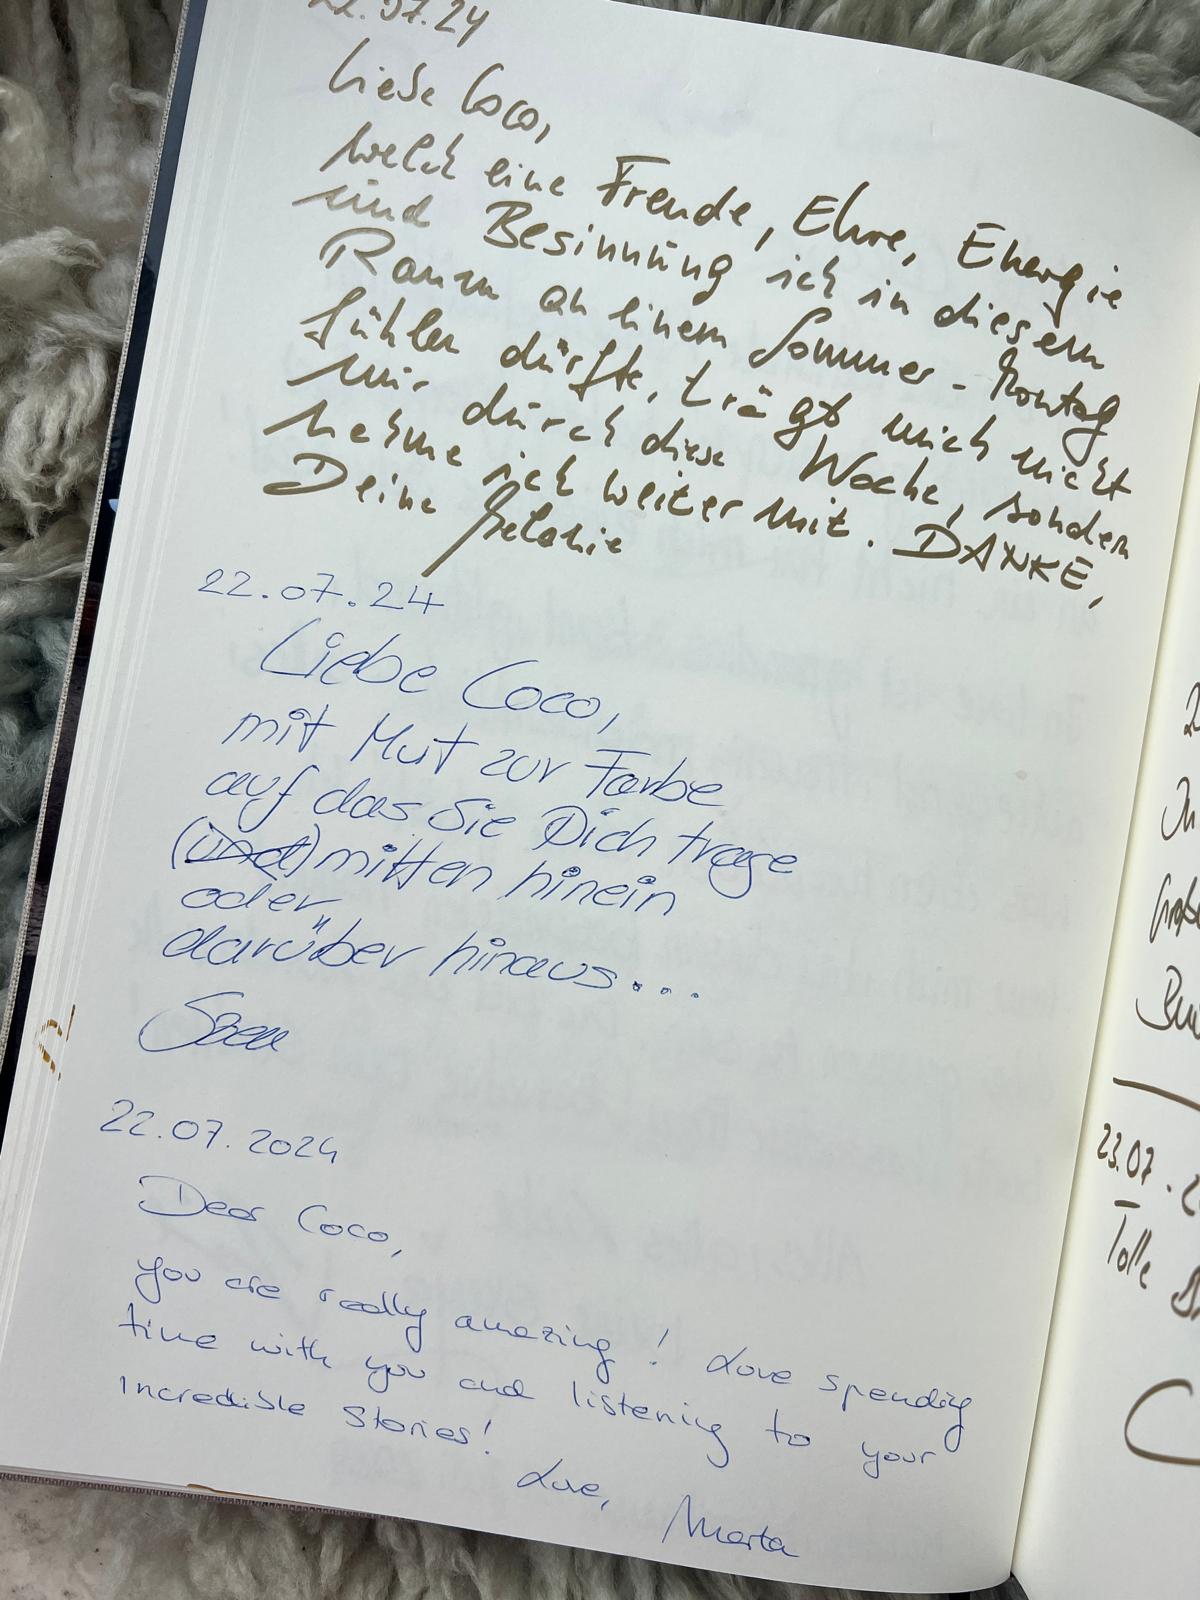 22.07.24
Liebe Coco,
welch eine Freude, Ehre, Energie
und Besinnung ich in diesem
Raum an einem Sommer-Montag
fühlen dürfte, trägt mich nicht
nur durch diese Woche, sondern
nehme ich weiter mit. DANKE,
Deine Melanie
22.07.24
Liebe Coco,
mit Mut zur Farbe
auf das Sie Dich trage
(und) mitten hinein
oder
darüber hinaus...
22.07.2024
Dear Coco,
you are really amazing! Love spending
time with you and listening to your
incredible stories!
Love,
Marta
23.07.2
Tolle